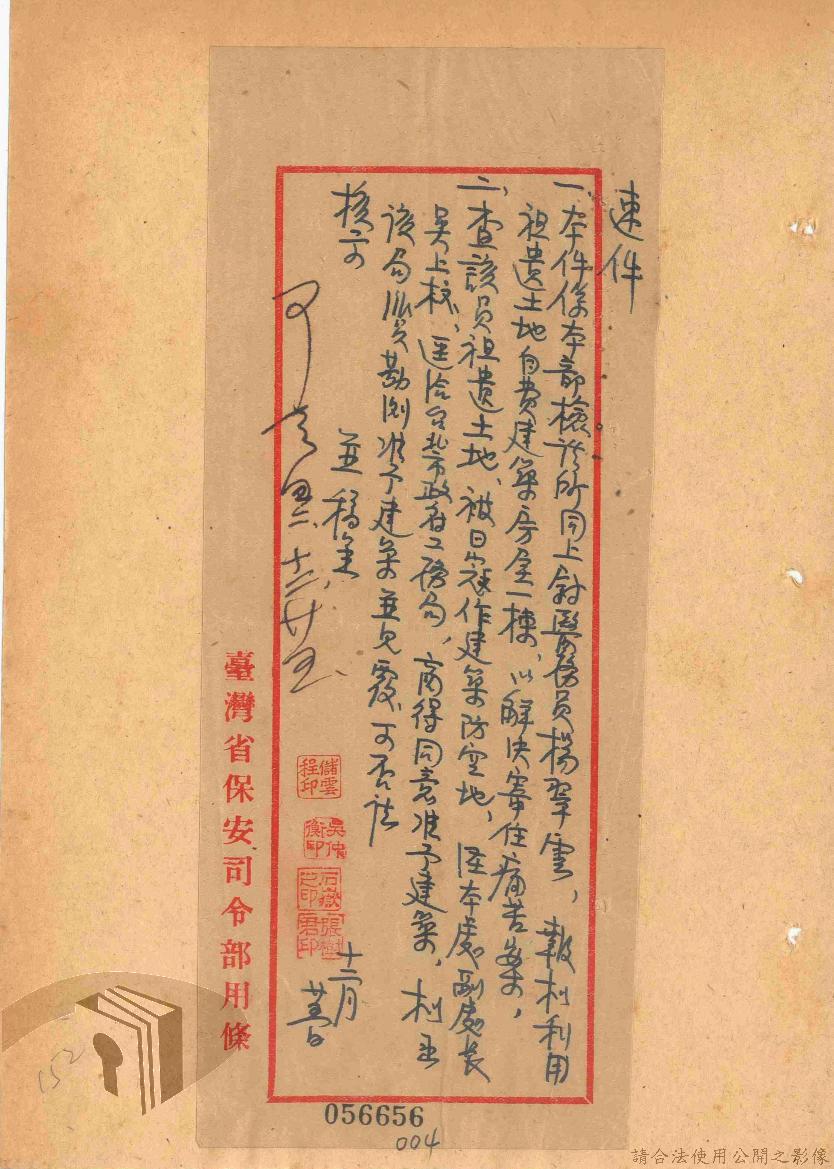 速件
一、本件係本部檢診所同上尉醫務員楊翠雲，報到利用
祖遺土地自費建築房屋一棟，以解決寄住痛苦案，
二、查該員祖遺土地、被日寇作建築防空地，經本處副處長
吳上校、逕洽台北市政府工務局，商得同意准予建築，
該局派員勘測准予建築並免費，可否請
核示
並稿呈
可 四六、十二、廿五、
十二月
廿四日
儲雲程印
吳仲衡印
臺灣省保安司令部用條
056656
004
152
請合法使用公開之影像